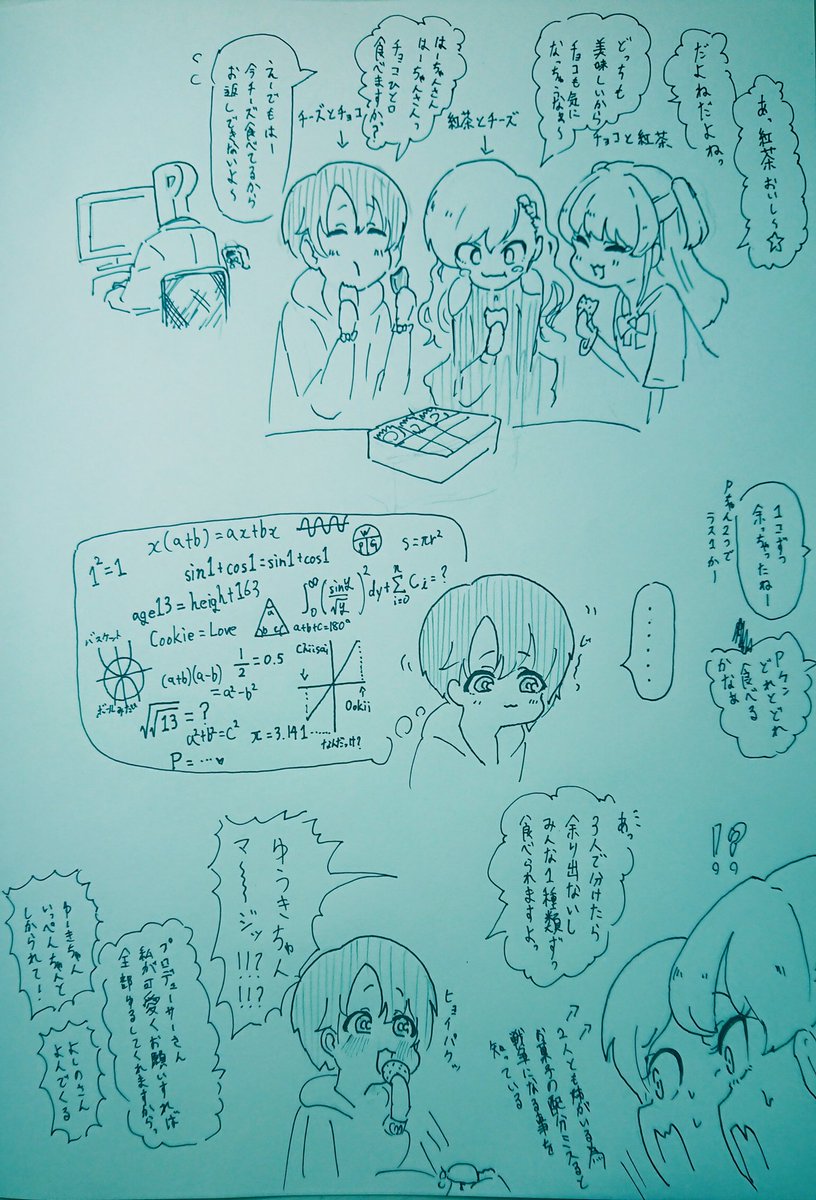 あっ紅茶おいしぅ☆
だよねだよねっ
どっちも
美味しいから
チョコも気に
なっちゃうなぁ〜
はーちゃんさん
はーちゃんさんっ
チョコひと口
食べますか?
えーでもはー
今チーズ食べてるから
お返しできないよ〜
チョコと紅茶
紅茶とチーズ
チーズとチョコ
P
1コずつ
余っちゃったねー
Pちゃん2つで
ラス1かー
Pケン
どれとどれ
食べる
かなぁ
・・・・・・
じーっ
1²=1
x(a+b)=ax+bx
S=πr²
sin1+cos1=sin1+cos1
age13=height163
Cookie=Love
a
b c
a+b+c=180°
∫₀^∞(sin y/√y)²dy+Σ_{i=0}^{n} Ci=?
バスケット
ボールみたい
(a+b)(a-b)
=a²-b²
1/2=0.5
√√13=?
a²+b²=c²
π=3.141……
Chiisai
Ookii
なんだっけ?
P=…♥
!?
あっ
3人で分けたら
余り出ないし
みんな1種類ずつ
食べられますよっ
2人とも姉がいる為
お菓子の配分ミスると
戦争になる事を
知っている
ヒョイパクッ
ゆうきちゃん
マ〜〜ジッ!!?!!?
プロデューサーさん
私が可愛くお願いすれば
全部ゆるしてくれますからっ
ゆーきちゃん
いっぺんちゃんと
しかられて!
よしのさん
よんでくる